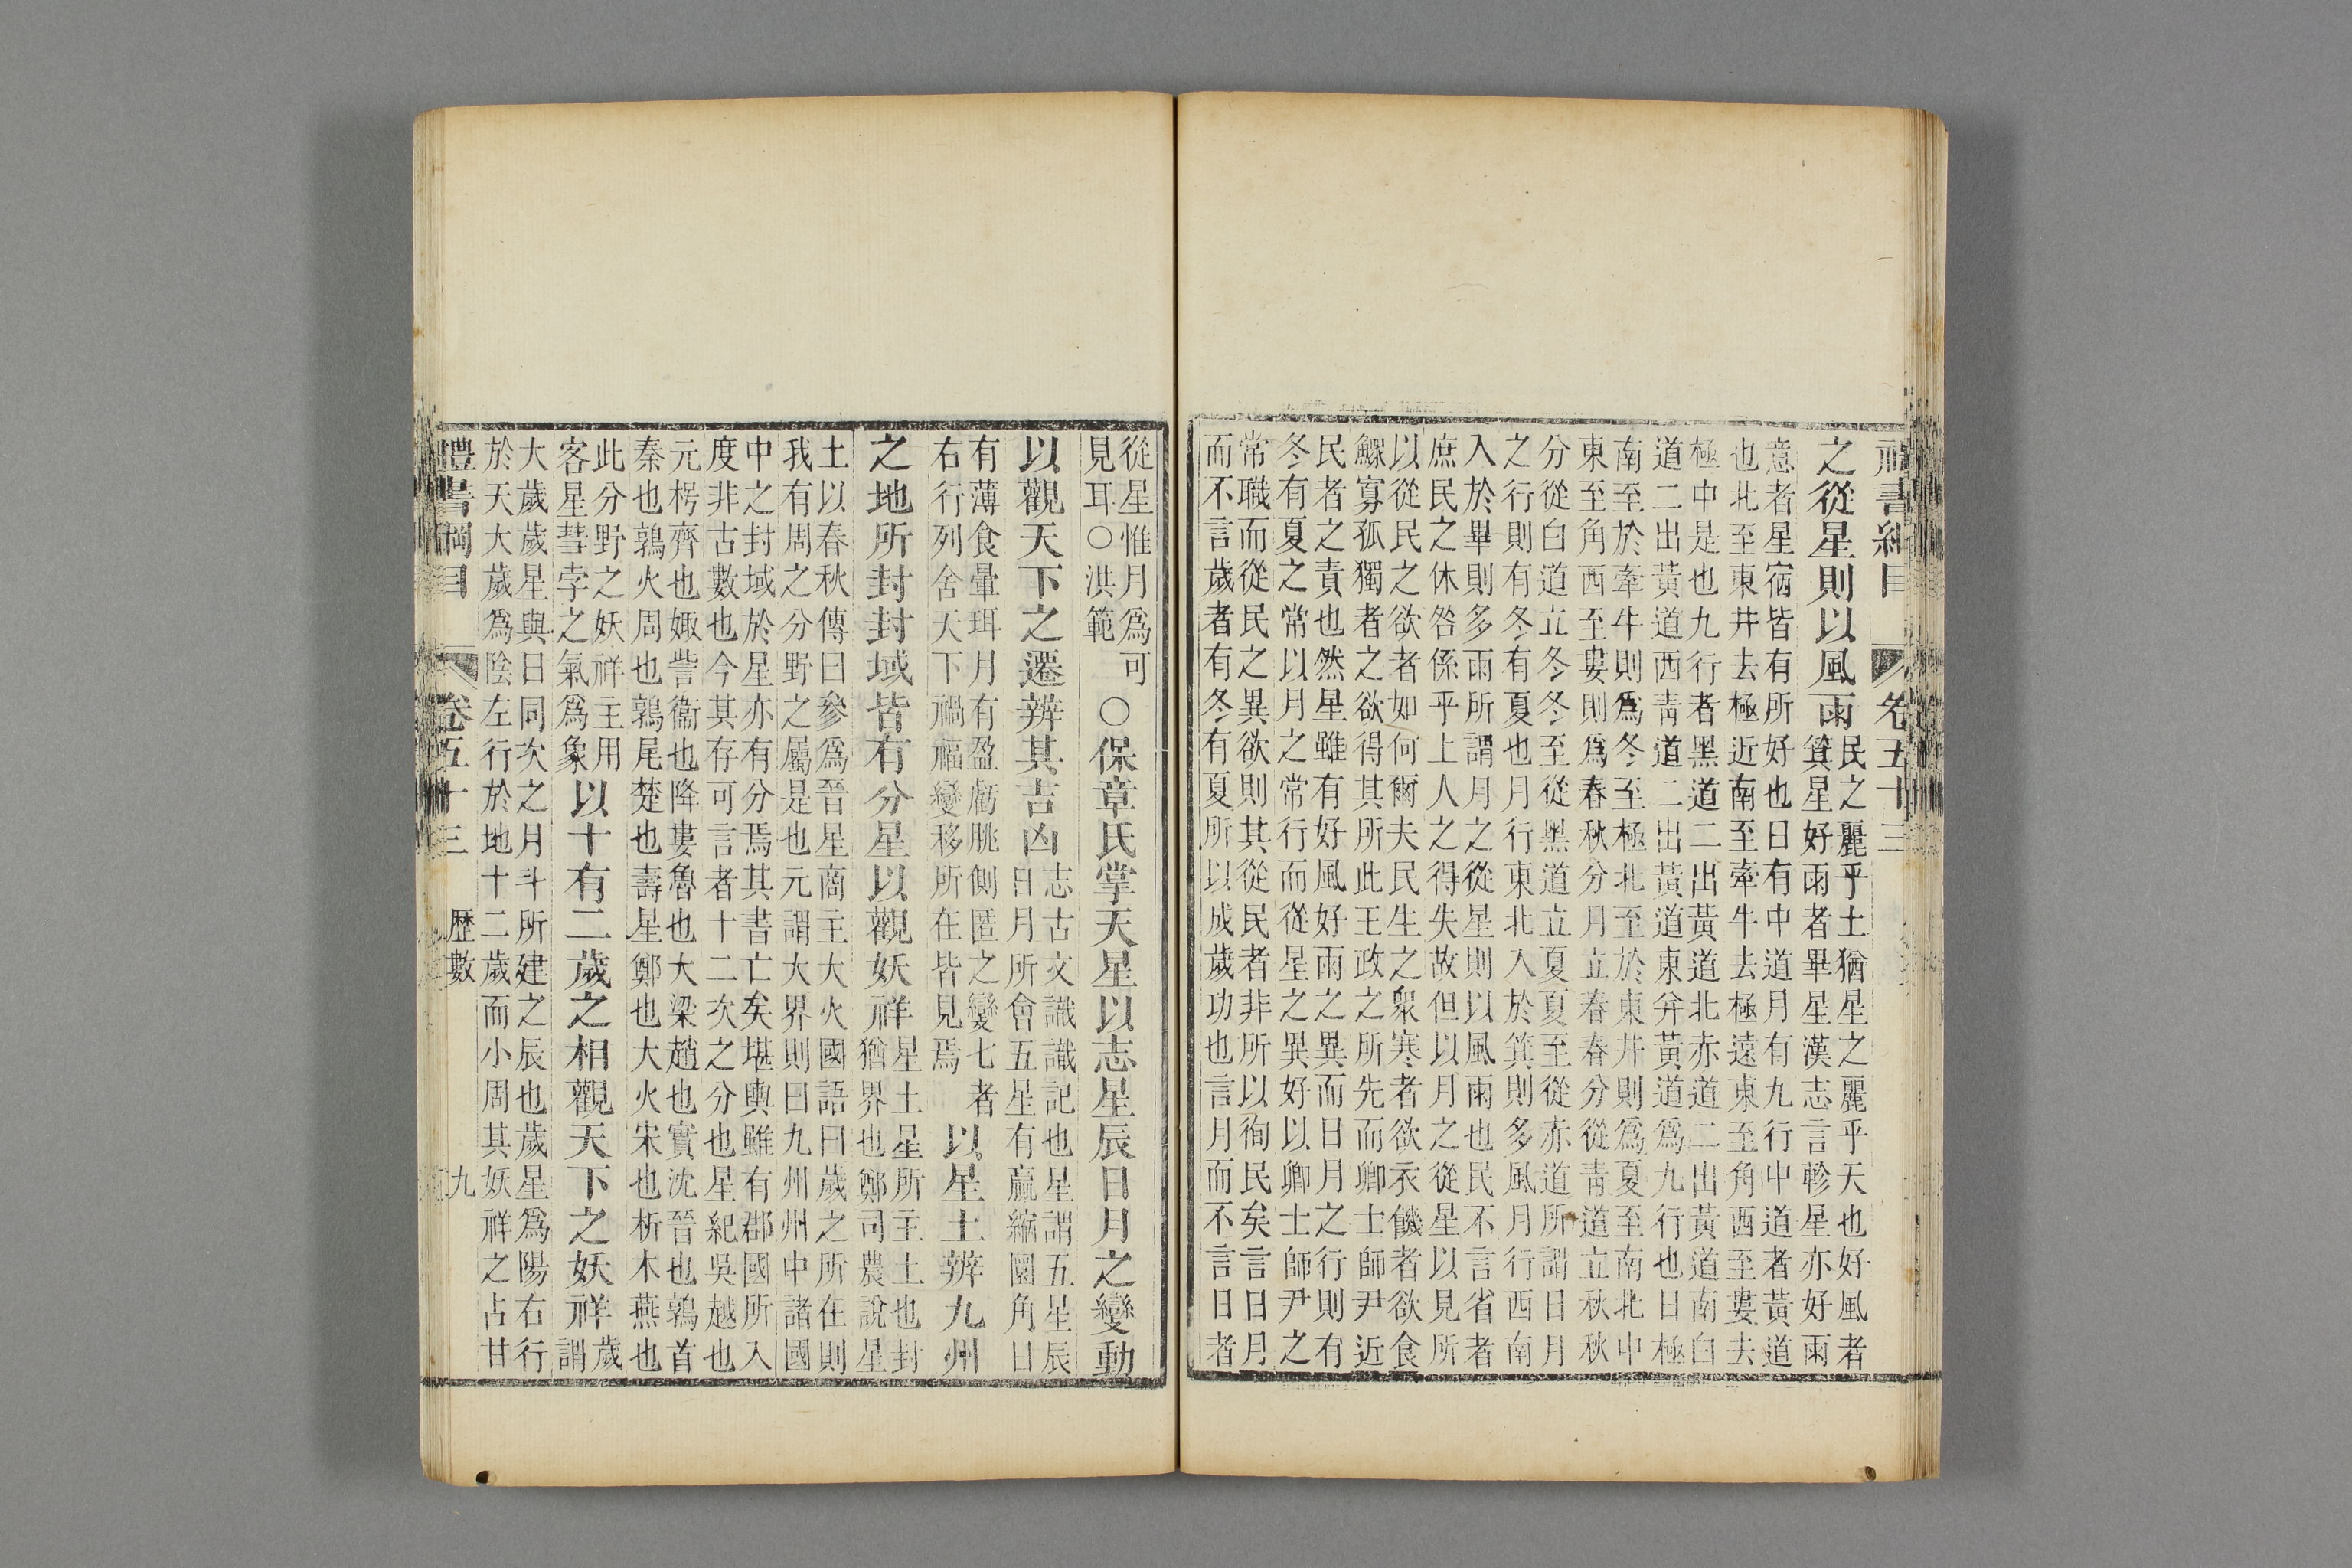 禮書綱目 卷五十三
之從星則以風雨
民之麗乎土猶星之麗乎天也好風者
箕星好雨者畢星漢志言軫星亦好雨
意者星宿皆有所好也日有中道月有九行中道者黃道
也北至東井去極近南至牽牛去極遠東至角西至婁去
極中是也九行者黑道二出黃道北赤道二出黃道南白
道二出黃道西青道二出黃道東并黃道為九行也日極
南至於牽牛則為冬至極北至於東井則為夏至南北中
東至角西至婁則為春秋分月立春春分從青道立秋秋
分從白道立冬冬至從黑道立夏夏至從赤道所謂日月
之行則有冬有夏也月行東北入於箕則多風月行西南
入於畢則多雨所謂月之從星則以風雨也民不言省者
庶民之休咎係乎上人之得失故但以月之從星以見所
以從民之欲者如何爾夫民生之眾寒者欲衣饑者欲食
鰥寡孤獨者之欲得其所此王政之所先而卿士師尹近
民者之責也然星雖有好風好雨之異而日月之行則有
冬有夏之常以月之常行而從星之異好以卿士師尹之
常職而從民之異欲則其從民者非所以徇民矣言日月
而不言歲者有冬有夏所以成歲功也言月而不言日者
從星惟月為可
見耳○洪範
○保章氏掌天星以志星辰日月之變動
以觀天下之遷辨其吉凶
志古文識識記也星謂五星辰
日月所會五星有贏縮圜角日
有薄食暈珥月有盈虧朓側匿之變七者
右行列舍天下禍福變移所在皆見焉
以星土辨九州
之地所封封域皆有分星以觀妖祥
星土星所主土也封
猶界也鄭司農說星
土以春秋傳曰參為晉星商主大火國語曰歲之所在則
我有周之分野之屬是也元謂大界則曰九州州中諸國
中之封域於星亦有分焉其書亡矣堪輿雖有郡國所入
度非古數也今其存可言者十二次之分也星紀吳越也
元枵齊也娵訾衞也降婁魯也大梁趙也實沈晉也鶉首
秦也鶉火周也鶉尾楚也壽星鄭也大火宋也析木燕也
此分野之妖祥主用
客星彗孛之氣為象
以十有二歲之相觀天下之妖祥
歲
謂
大歲歲星與日同次之月斗所建之辰也歲星為陽右行
於天大歲為陰左行於地十二歲而小周其妖祥之占甘
禮書綱目 卷五十三 歷數 九